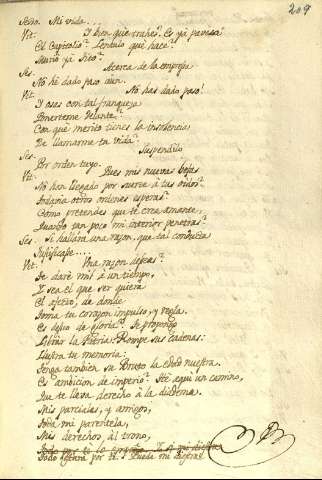 209
Sesto. Mi vida...
Vit. Y bien que trahes? Es ya pavesa
El Capitolio? Lentulo que hace?
Murió ya Tito?
Ses. Acerca de la empresa
No he dado paso aun.
Vit. No has dado paso!
Y osas con tal franqueza
Ponerteme delante?
Con que merito tienes la insolencia
De llamarme tu vida?
Ses. Suspendilo
Por orden tuyo.
Vit. Pues mis nuevas
No han llegado por suerte à tus oidos?
Todavia otros ordenes esperas?
Como pretendes que te crea amante,
Quando tan poco mi interior penetras?
Ses. Si hallára una razon, que tal conducta
Justificase...
Vit. Una razon deseas?
Te daré mil à un tiempo,
Y sea el que se quiera
El afecto, de donde
Toma tu corazon impulso, y regla.
Es deseo de gloria? Te propongo
Librar la Patria: Rompe sus cadenas:
Ilustra tu memoria:
Tenga tambien su Bruto la edad nuestra.
Es ambicion de imperio? Hé aqui un camino,
Que te lleva derecho à la diadema.
Mis parciales, y amigos,
Toda mi parentela,
Mis derechos al trono,
Todo por ti Puede mi